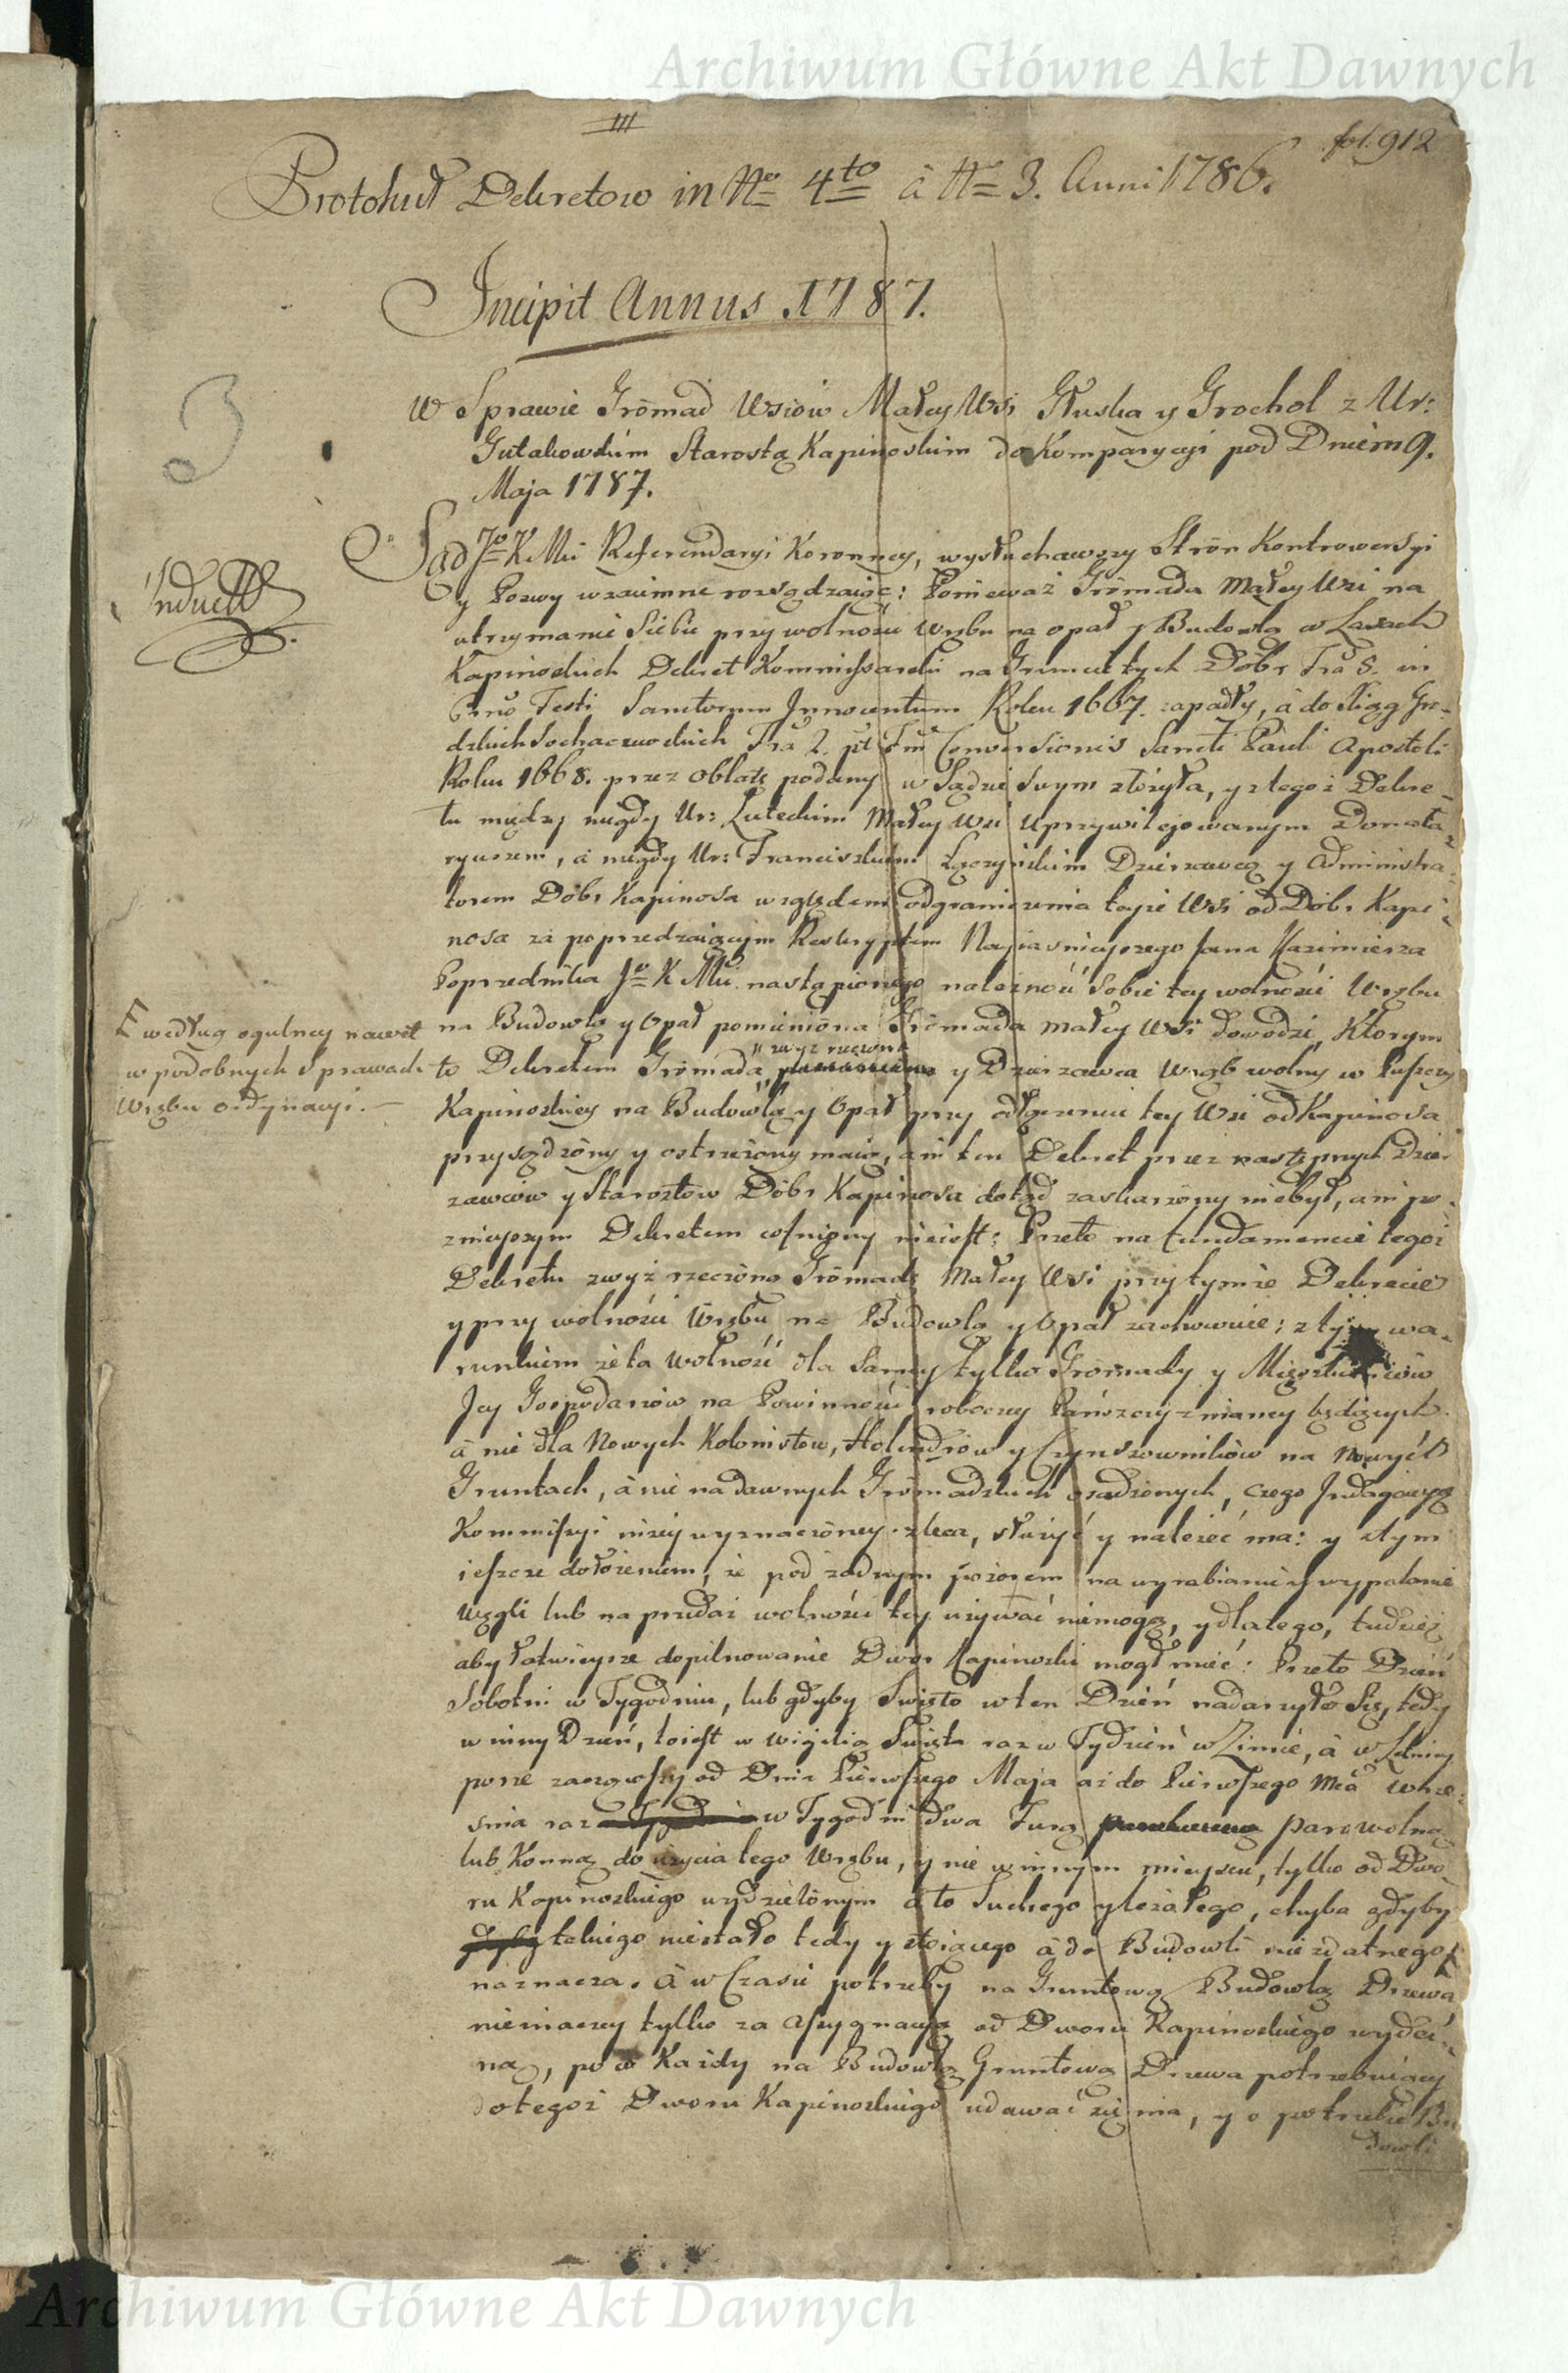 Archiwum Główne Akt Dawnych
III
fol. 912
Protokuł Dekretow in Nro 4to à Nro 3. Anni 1786.
Incipit Annus 1787.
3
W Sprawie Grōmad Wsiow Małey Wsi Głuska y Grochol z Ur:
Gutakowskim Starostą Kapinoskim do Komparycyi pod Dniem 9.
Maja 1787.
Induct
Sąd Jo K Mci Referendaryi Koronney, wysłuchawszy Strōn Kontrowersyi
y Pozwy wzaiemne rozsądzaiąc: Ponieważ Grōmada Małey Wsi na
utrzymanie Siebie przy wolności Wrębu na opał y Budowlą w Lasach
Kapinoskich Dekret Kommissarski na Gruncie tych Dóbr Fra 5. in
Festi Sanctorum Innocentum Roku 1667. zapadły, à do Xiąg Gro-
dzkich Sochaczewskich Fra 2. pt Fm Conversionis Sancti Pauli Apostoli
Roku 1668. przez oblatę podany w Sądzie Swym złożyła, y z tegoż Dekre-
tu między niegdy Ur: Luteckim Małey Wsi uprzywilejowanym Donata-
ryuszem, à niegdy Ur: Franciszkiem Dzierzawcą y Administra-
torem Dóbr Kapinosa względem odgraniczenia teyże Wsi od Dóbr Kapi-
nosa za poprzedzaiącym Reskryptem Nayiasnieyszego Jana Kazimierza
Poprzednika Jo K Mci nastąpionego należność Sobie tey wolności Wrębu
na Budowlą y Opał pomieniōna Grōmada Małey Wsi dowodzi, Ktorym
według ogulney nawet
w podobnych Sprawach
Wrębu ordynacyi. —
zwyż rzeczona
to Dekretem Grōmada y Dzierzawca Wrąb wolny w Puszczy
Kapinoskiey na Budowlą y Opał przy odłączeniu tey Wsi od Kapinosa
przysądzōny y ostrzeżōny maią, ani ten Dekret przez nastęnych Dzier
zawców y Starostow Dóbr Kapinosa dotąd zaskarżōny niebył, ani po-
znieyszym Dekretem cofniony nieiest: Przeto na fundamencie tegoż
Dekretu zwyż rzeczōną Grōmadę Małey Wsi przy tymże Dekrecie
y przy wolności Wrębu na Budowlą y Opał zachowuie: z tym wa-
runkiem że ta wolność dla Samey tylko Grōmady y Mieszkancow
Jey Gospodarzow na Powinności robocney Pańszczyznianey będących
à nie dla Nowych Kolonistow, Holendrow y Czynszownikōw na Nowych
Gruntach, à nie na dawnych Grōmadzkich osadzonych, czego Indagacyą
Kommissyi niżey wyznaczōney zleca, służyć y należeć ma: y z tym
ieszcze dołożeniem, że pod żadnym pozorem na wyrabianie y wypalanie
węgli lub na przedaż wolności tey używać niemogą, y dlatego, tudzież
aby łatwieysze dopilnowanie Dwor Kapinoski mogł mieć: Przeto Dzień
Sobotni w Tygodniu, lub gdyby Swięto w ten Dzień nadarzyło Się, tedy
w inny Dzień, toiest w wigilią Swięta raz w Tydzień w Zimie, à w Letniey
porze zacząwszy od Dnia Pierwszego Maja aż do Pierwszego Mca Wrze-
snia raz w Tygodni dwa Furą parowolną
lub Konną do użycia tego Wrębu, y nie w innym mieyscu, tylko od Dwo-
ru Kapinoskiego wydzielōnym à to Suchego y leżałego, chyba gdyby
takiego niestało tedy y stoiącego à do Budowli niezdatnego
naznacza. à w Czasie potrzeby na Gruntową Budowlą Drzewa
nieinaczey tylko za Assygnacyą od Dworu Kapinoskiego
po w Każdy na Budowlą Gruntową Drzewa potrzebuiący
do tegoż Dworu Kapinoskiego udawać się ma, y o potrzebie Bu
dowli
Archiwum Główne Akt Dawnych